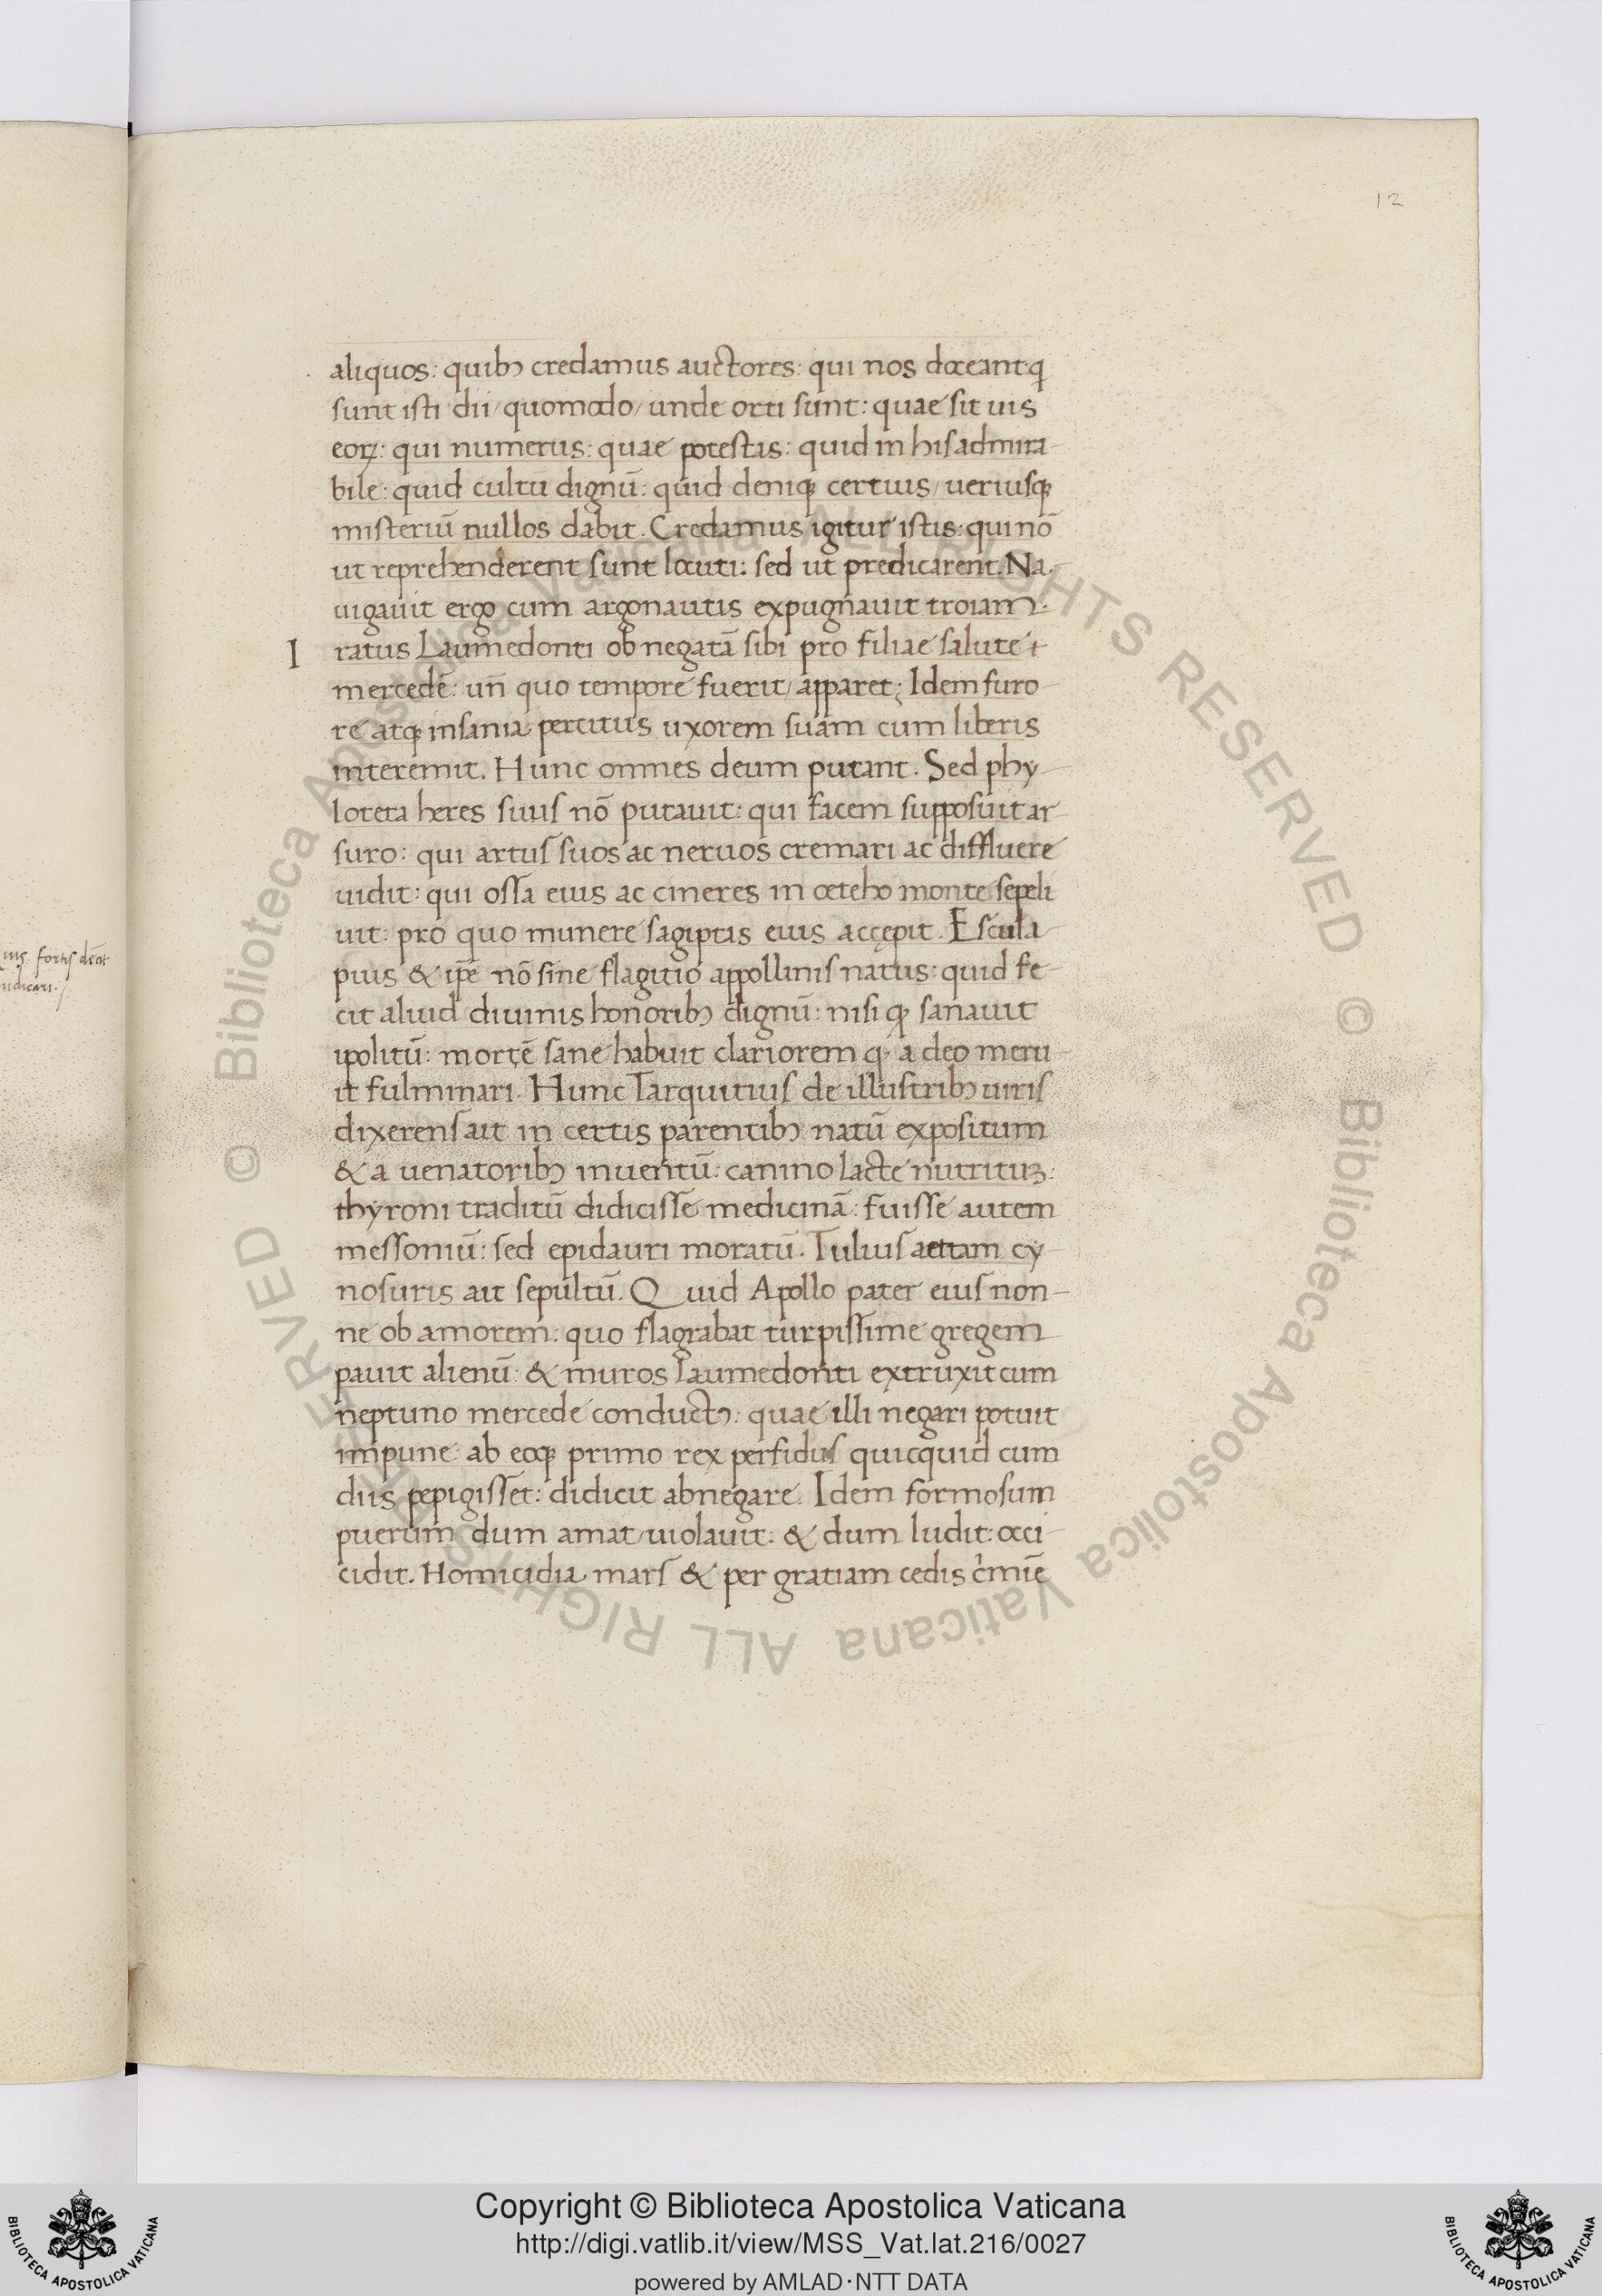 12
aliquos: quibꝫ credamus auctores: qui nos doceant: q
sunt isti dii / quomodo / unde orti sunt: quae sit uis
eorꝝ: qui numerus: quae potestas: quid in his admira-
bile: quid cultū dignū: quid deniqꝫ certius / ueriusqꝫ
misteriū nullos dabit. Credamus igitur istis: qui nō
ut reprehenderent sunt locuti: sed ut predicarent. Na-
uigauit ergo cum argonautis expugnauit troiam.
I ratus Laumedonti ob negatā sibi pro filiae salute
mercedē: un̄ quo tempore fuerit / apparet; Idem furo-
re atqꝫ insania percitus uxorem suam cum liberis
interemit. Hunc omnes deum putant. Sed phy-
loteta heres suus nō putauit: qui facem supposuit ar-
suro: qui artus suos ac neruos cremari ac diffluere
uidit: qui ossa eius ac cineres in oeteho monte sepeli
uit: pro quo munere sagiptas eius accępit. Escula-
pius & ip̄e nō sine flagitio appollinis natus: quid fe-
cit aliud diuinis honoribꝫ dignū: nisi qꝫ sanauit
ipolitū: mortē sane habuit clariorem q a deo meru-
it fulminari. Hunc Tarquitius de illustribꝫ uiris
dixerens ait in certis parentibꝫ natū expositum
& a uenatoribꝫ inuentū: canino lacte nutrituꝫ:
thyroni traditū didicisse medicinā: fuisse autem
messoniū: sed epidauri moratū. Tulius aettam cy-
nosuris ait sepultū. Quid Apollo pater eius non-
ne ob amorem: quo flagrabat turpissime gregem
pauit alienū: & muros Laumedonti extruxit cum
neptuno mercede conductꝰ: quae illi negari potuit
impune: ab eoqꝫ primo rex perfidus quicquid cum
diis pepigisset: didicit abnegare. Idem formosum
puerum dum amat / uiolauit: & dum ludit: occi-
cidit. Homicidia mars & per gratiam cedis
Copyright © Biblioteca Apostolica Vaticana
http://digi.vatlib.it/view/MSS_Vat.lat.216/0027
powered by AMLAD·NTT DATA
BIBLIOTECA APOSTOLICA VATICANA
BIBLIOTECA APOSTOLICA VATICANA
© Biblioteca Apostolica Vaticana ALL RIGHTS RESERVED © Biblioteca Apostolica Vaticana ALL RIGHTS RESERVED